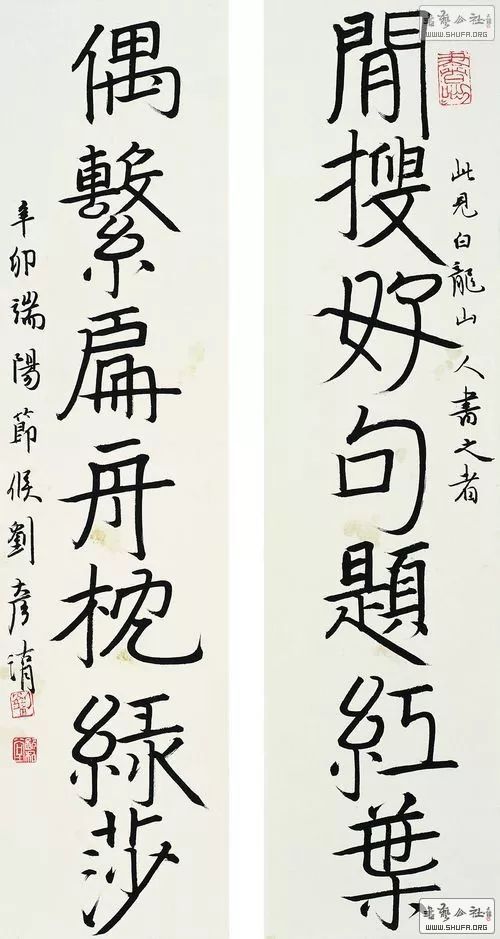 閒搜好句題紅葉
此見白龍山人書之者
偶繫扁舟枕綠莎
辛卯端陽節候劉彥湖
書藝公社
WWW.SHUFA.ORG
書藝公社
WWW.SHUFA.ORG